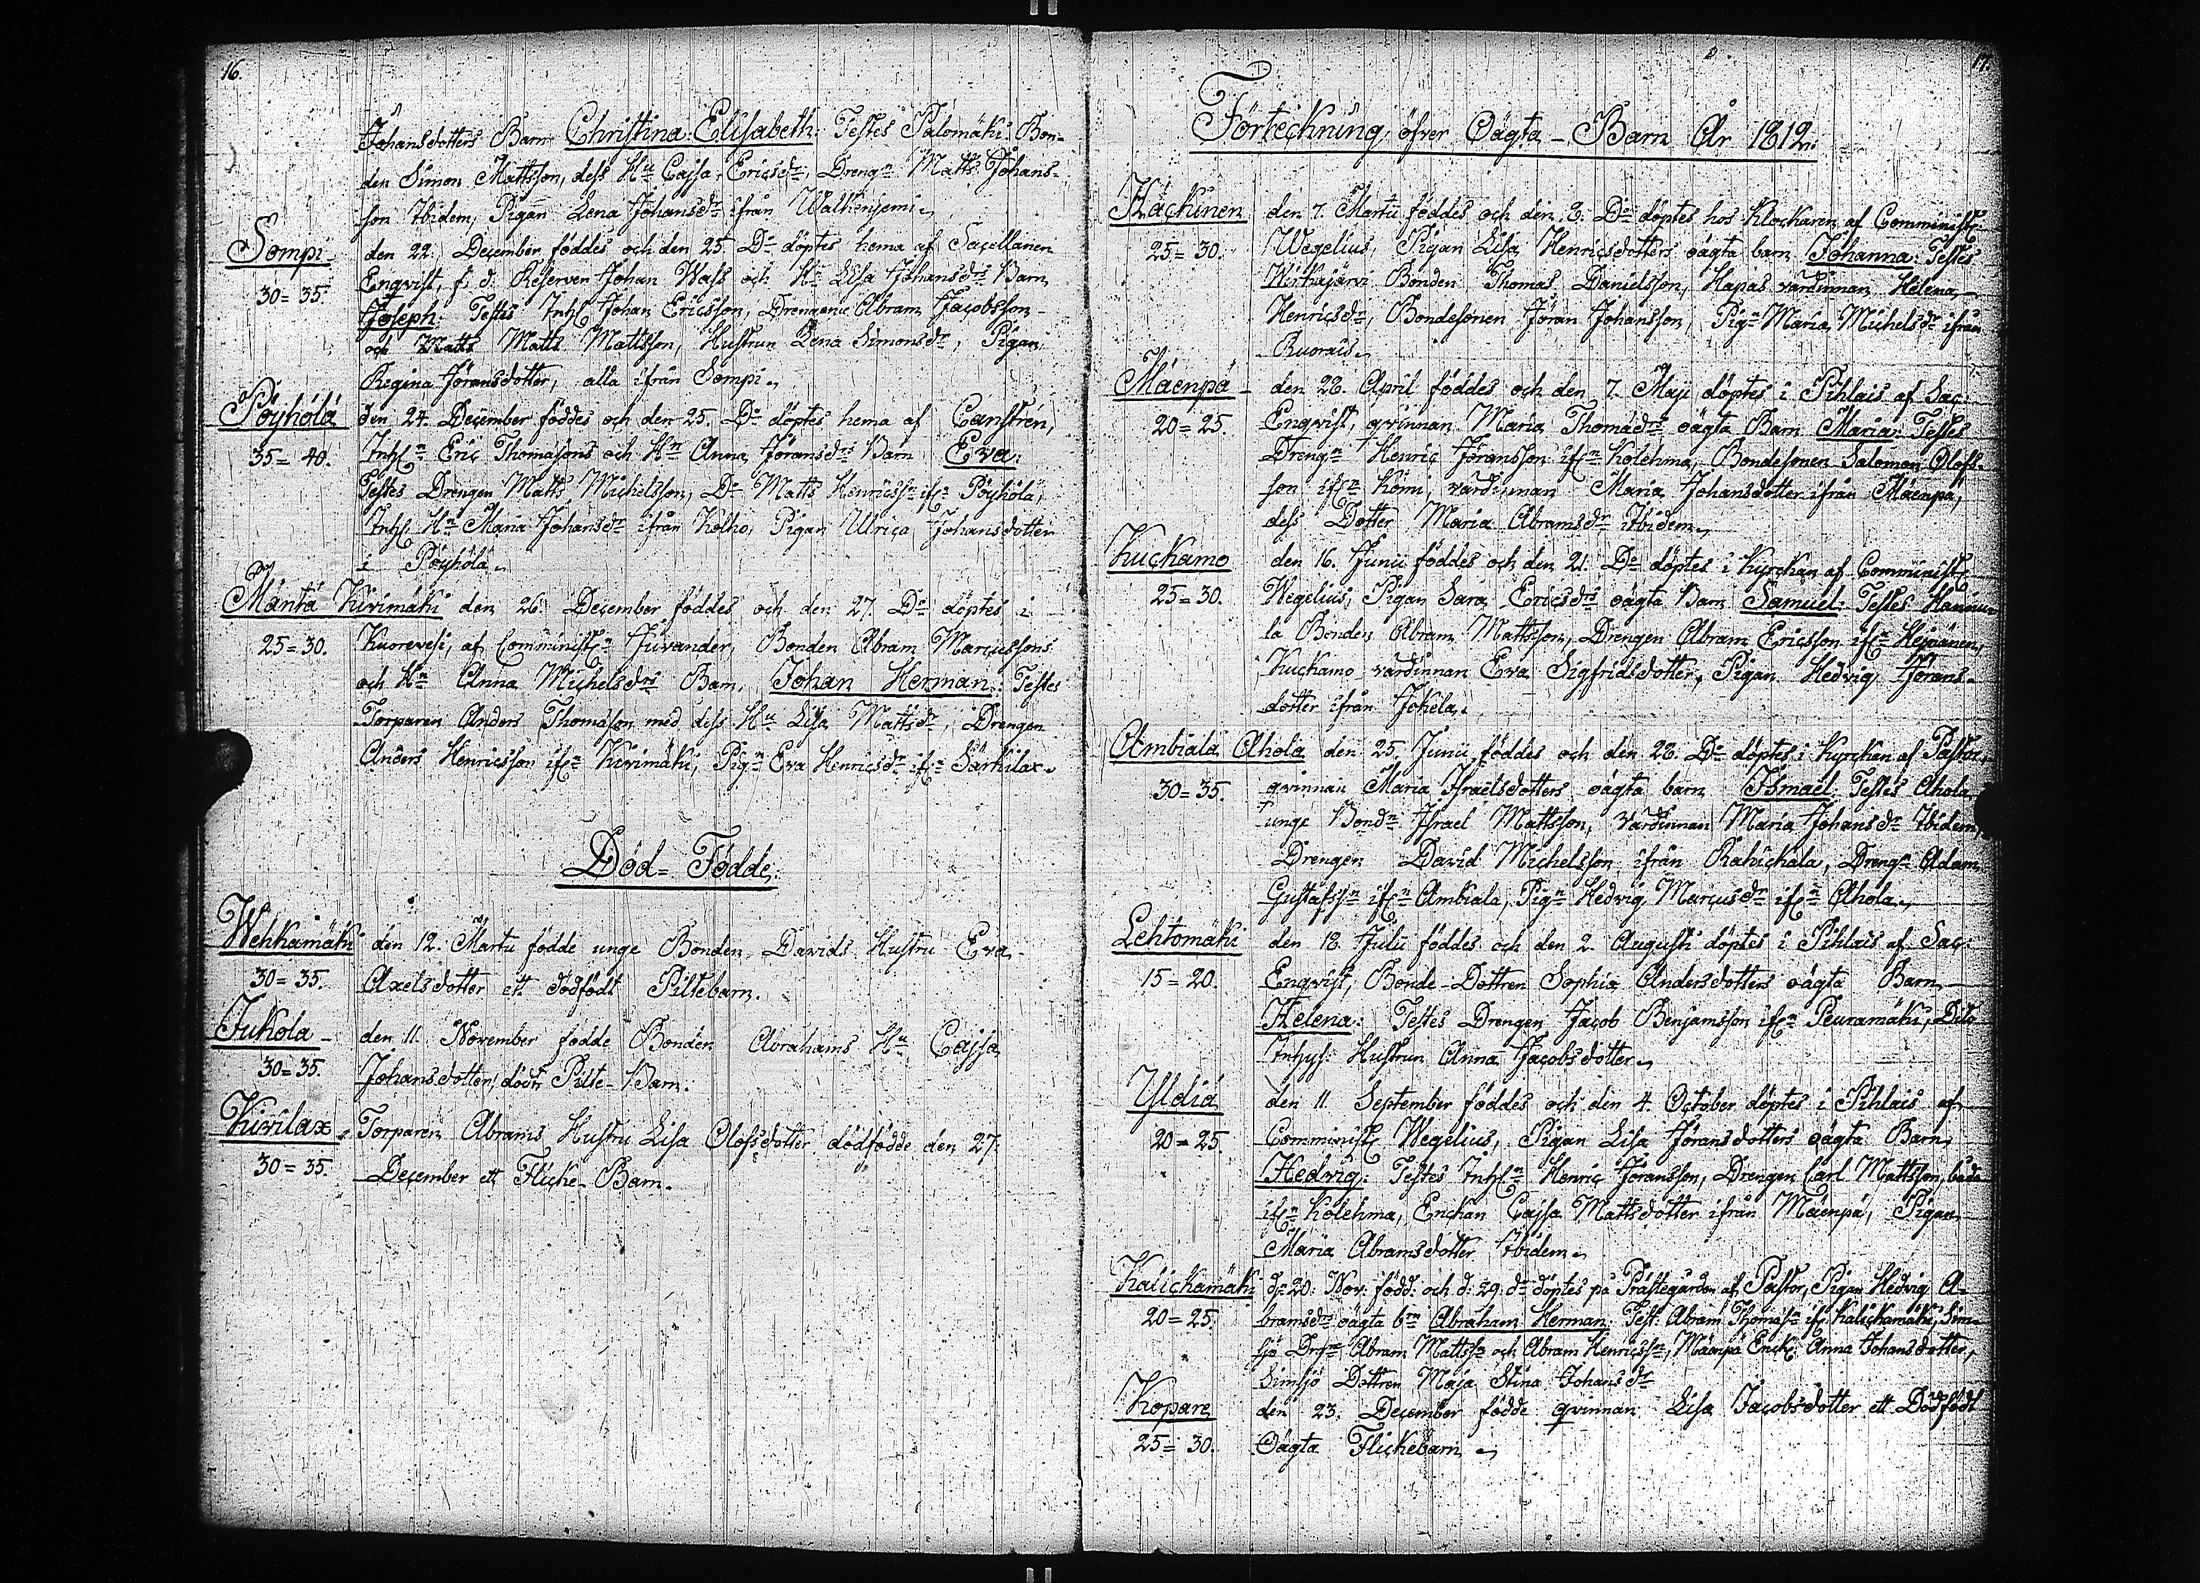 16.
Johansdotters Barn Christina: Elisabeth: Testes Palomäki Bon-
den Simon Mattsson, dess Hu Cajsa Ericsdr, Drengn Matts Johans-
son Ibidem, Pigan Lena Johansdr ifrån Walkenjemi.
Sompi den 22. December föddes och den 25 Do döptes hema af Sacellanen
30=35. Enqvist, f: d. Reserven Johan Wass och Hu Lisa Johansdrs Barn
Joseph: Testes Inhs Johan Ericsson, Drengarne Abram Jacobsson
och Matts Matts Mattsson, Hustrun Lena Simonsdr, Pigan
Regina Jöransdotter, alla ifrån Sompi.
Pöyhölä den 24. December föddes och den 25. Do döptes hema af Canstrén,
35=40. Inhsn Eric Thomasons och Hn Anna Jöransdrs Barn Eva:
Testes Drengen Matts Michelsson, Do Matts Henricssn ifn Pöyhölä,
Inhs Hu Maria Johansdr ifrån Kolho, Pigan Ulrica Johansdotter
i Pöyhölä.
Mänttä Kivimäki den 26 December föddes och den 27. Do döptes i
25=30. Kuorevesi, af Comminist: Juvander, Bonden Abram Marcussons
och Hn Anna Michelsdrs Barn, Johan Herman: Testes
Torparen Anders Thomasson med dess Hu Lisa Mattsdr, Drengen
Anders Henricsson ifn Kivimäki, Pign Eva Henricsdr ifn Särkilax.
Död=Födde:
Wehkamäki den 12. Martii födde unge Bonden Davids Hustru Eva
30=35. Axelsdotter ett dödfödt Piltebarn.
Jukola den 11. November födde Bonden Abrahams Hu Cajsa
30=35. Johansdotter, dödt Pilte-Barn.
Kivilax. Torparen Abrams Hustru Lisa Olofsdotter dödfödde den 27.
30=35. December ett Flicke-Barn.
17.
Förteckning öfver Oägta-Barn År 1812.
Häckinen den 7. Martii föddes och den 8. Do döptes hos Klockaren af Comminist:
25=30. Wegelius, Pigan Lisa Henricsdotters oägta barn Johanna: Testes
Wirkajärvi Bonden Thomas Danielsson, Hapas värdinnan Helena
Henricsdr, Bondesonen Jöran Johansson, Pign Maria Michelsdr ifrån
Ruorais.
Mäenpä den 22. April föddes och den 7. Maji döptes i Pihlais af Sac:
20=25. Enqvist, qvinnan Maria Thomædrs oägta Barn Maria: Testes
Drengn Henric Jöransson ifrn Kolehma, Bondesonen Salomon Olofs-
son ifrn Kömi, värdinnan Maria Johansdotter ifrån Mäenpä,
dess Dotter Maria Abramsdr ibidem.
Kuckamo den 16. Junii föddes och den 21. Do döptes i Kyrckan af Comminist:
25=30. Wegelius, Pigan Sara Ericsdrs oägta Barn Samuel: Testes Hannu-
la Bonden Abram Mattsson, Drengen Abram Ericsson ifn Hejnänen,
Kuckamo värdinnan Eva Sigfridsdotter, Pigan Hedvig Jörans-
dotter ifrån Jokela.
Ambiala Ahola den 25. Junii föddes och den 28. Do döptes i Kyrckan af Pastor,
30=35. qvinnan Maria Israelsdotters oägta barn Ismael: Testes Ahola
unge Bondn Israel Mattsson, värdinnan Maria Johansdr Ibidem,
Drengen David Michelsson ifrån Rahickala, Drengn Adam
Gustafssn ifn Ambiala, Pign Hedvig Marcusdr ifn Ahola.
Lehtomäki den 18 Julii föddes och den 2. Augusti döptes i Pihlais af Sac:
15=20. Enqvist, Bonde-Dottren Sophia Andersdotters oägta Barn
Helena: Testes Drengen Jacob Benjamsson ifn Peuramäki, Dito
Inhys: Hustrun Anna Jacobsdotter.
Ylöiä den 11. September föddes och den 4. October döptes i Pihlais af
20=25. Comminist: Wegelius, Pigan Lisa Jöransdotters oägta Barn
Hedvig: Testes Inhsn Henric Jöransson, Drengen Carl Mattsson, båda
ifn Kolehma, Enckan Cajsa Mattsdotter ifrån Mäenpä, Pigan
Maria Abramsdotter Ibidem.
Kalickamäki d: 20: Nov: född: och d: 29: do döptes på Prästegården af Pastor, Pigan Hedvig A-
20=25. bramsdrs oägta bn Abraham Herman: Test: Abram Thomassn ifn Kalickamäki, Sim-
sjö Drngn Abram Mattssn och Abram Henricssn, Mäenpä Enck: Anna Johansdotter,
Simsjö Dottren Maja Stina Johansdr
Kopare den 23. December födde qvinnan Lisa Jacobsdotter ett Dödfödt
25=30. Oägta Flickebarn.